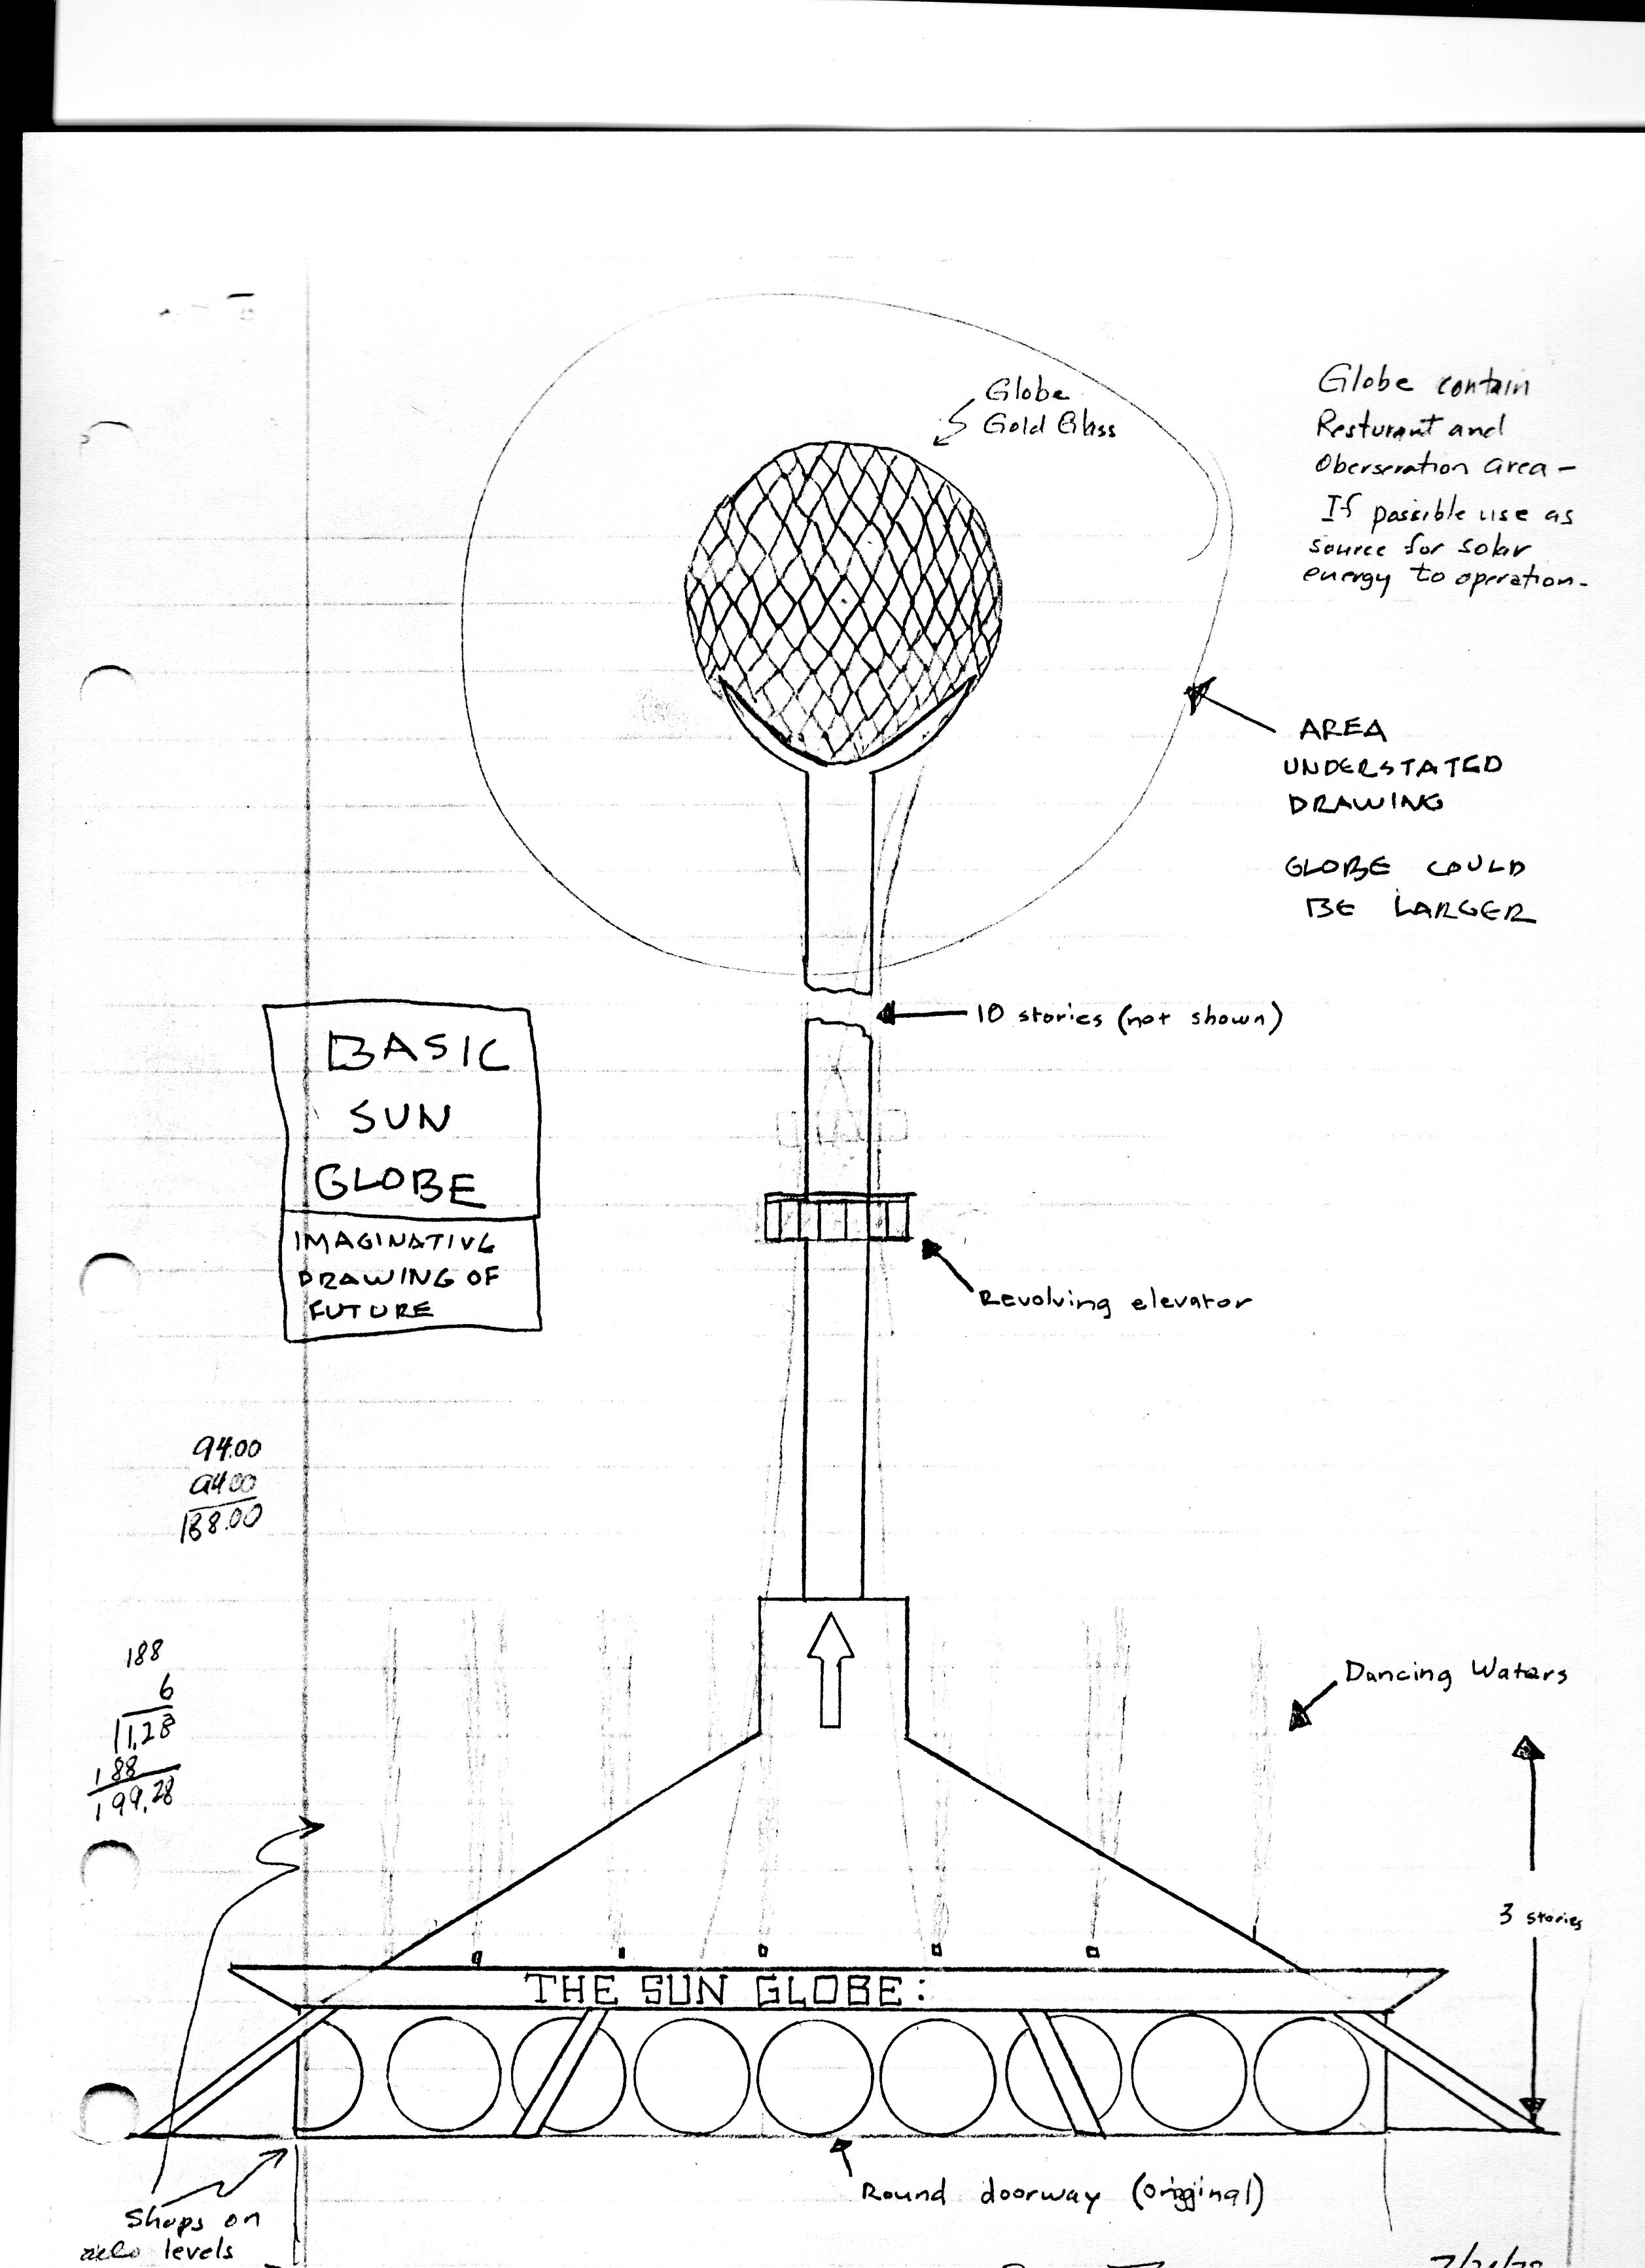 Globe
Gold Glass
Globe contain
Resturant and
Oberseration area -
If possible use as
source for solar
energy to operation-
AREA
UNDERSTATED
DRAWING
GLOBE COULD
BE LARGER
10 stories (not shown)
BASIC
SUN
GLOBE
IMAGINATIVE
DRAWING OF
FUTURE
Revolving elevator
94.00
94.00
188.00
188
6
11.28
188
199.28
Dancing Waters
3 stories
THE SUN GLOBE:
Round doorway (original)
Shops on
levels